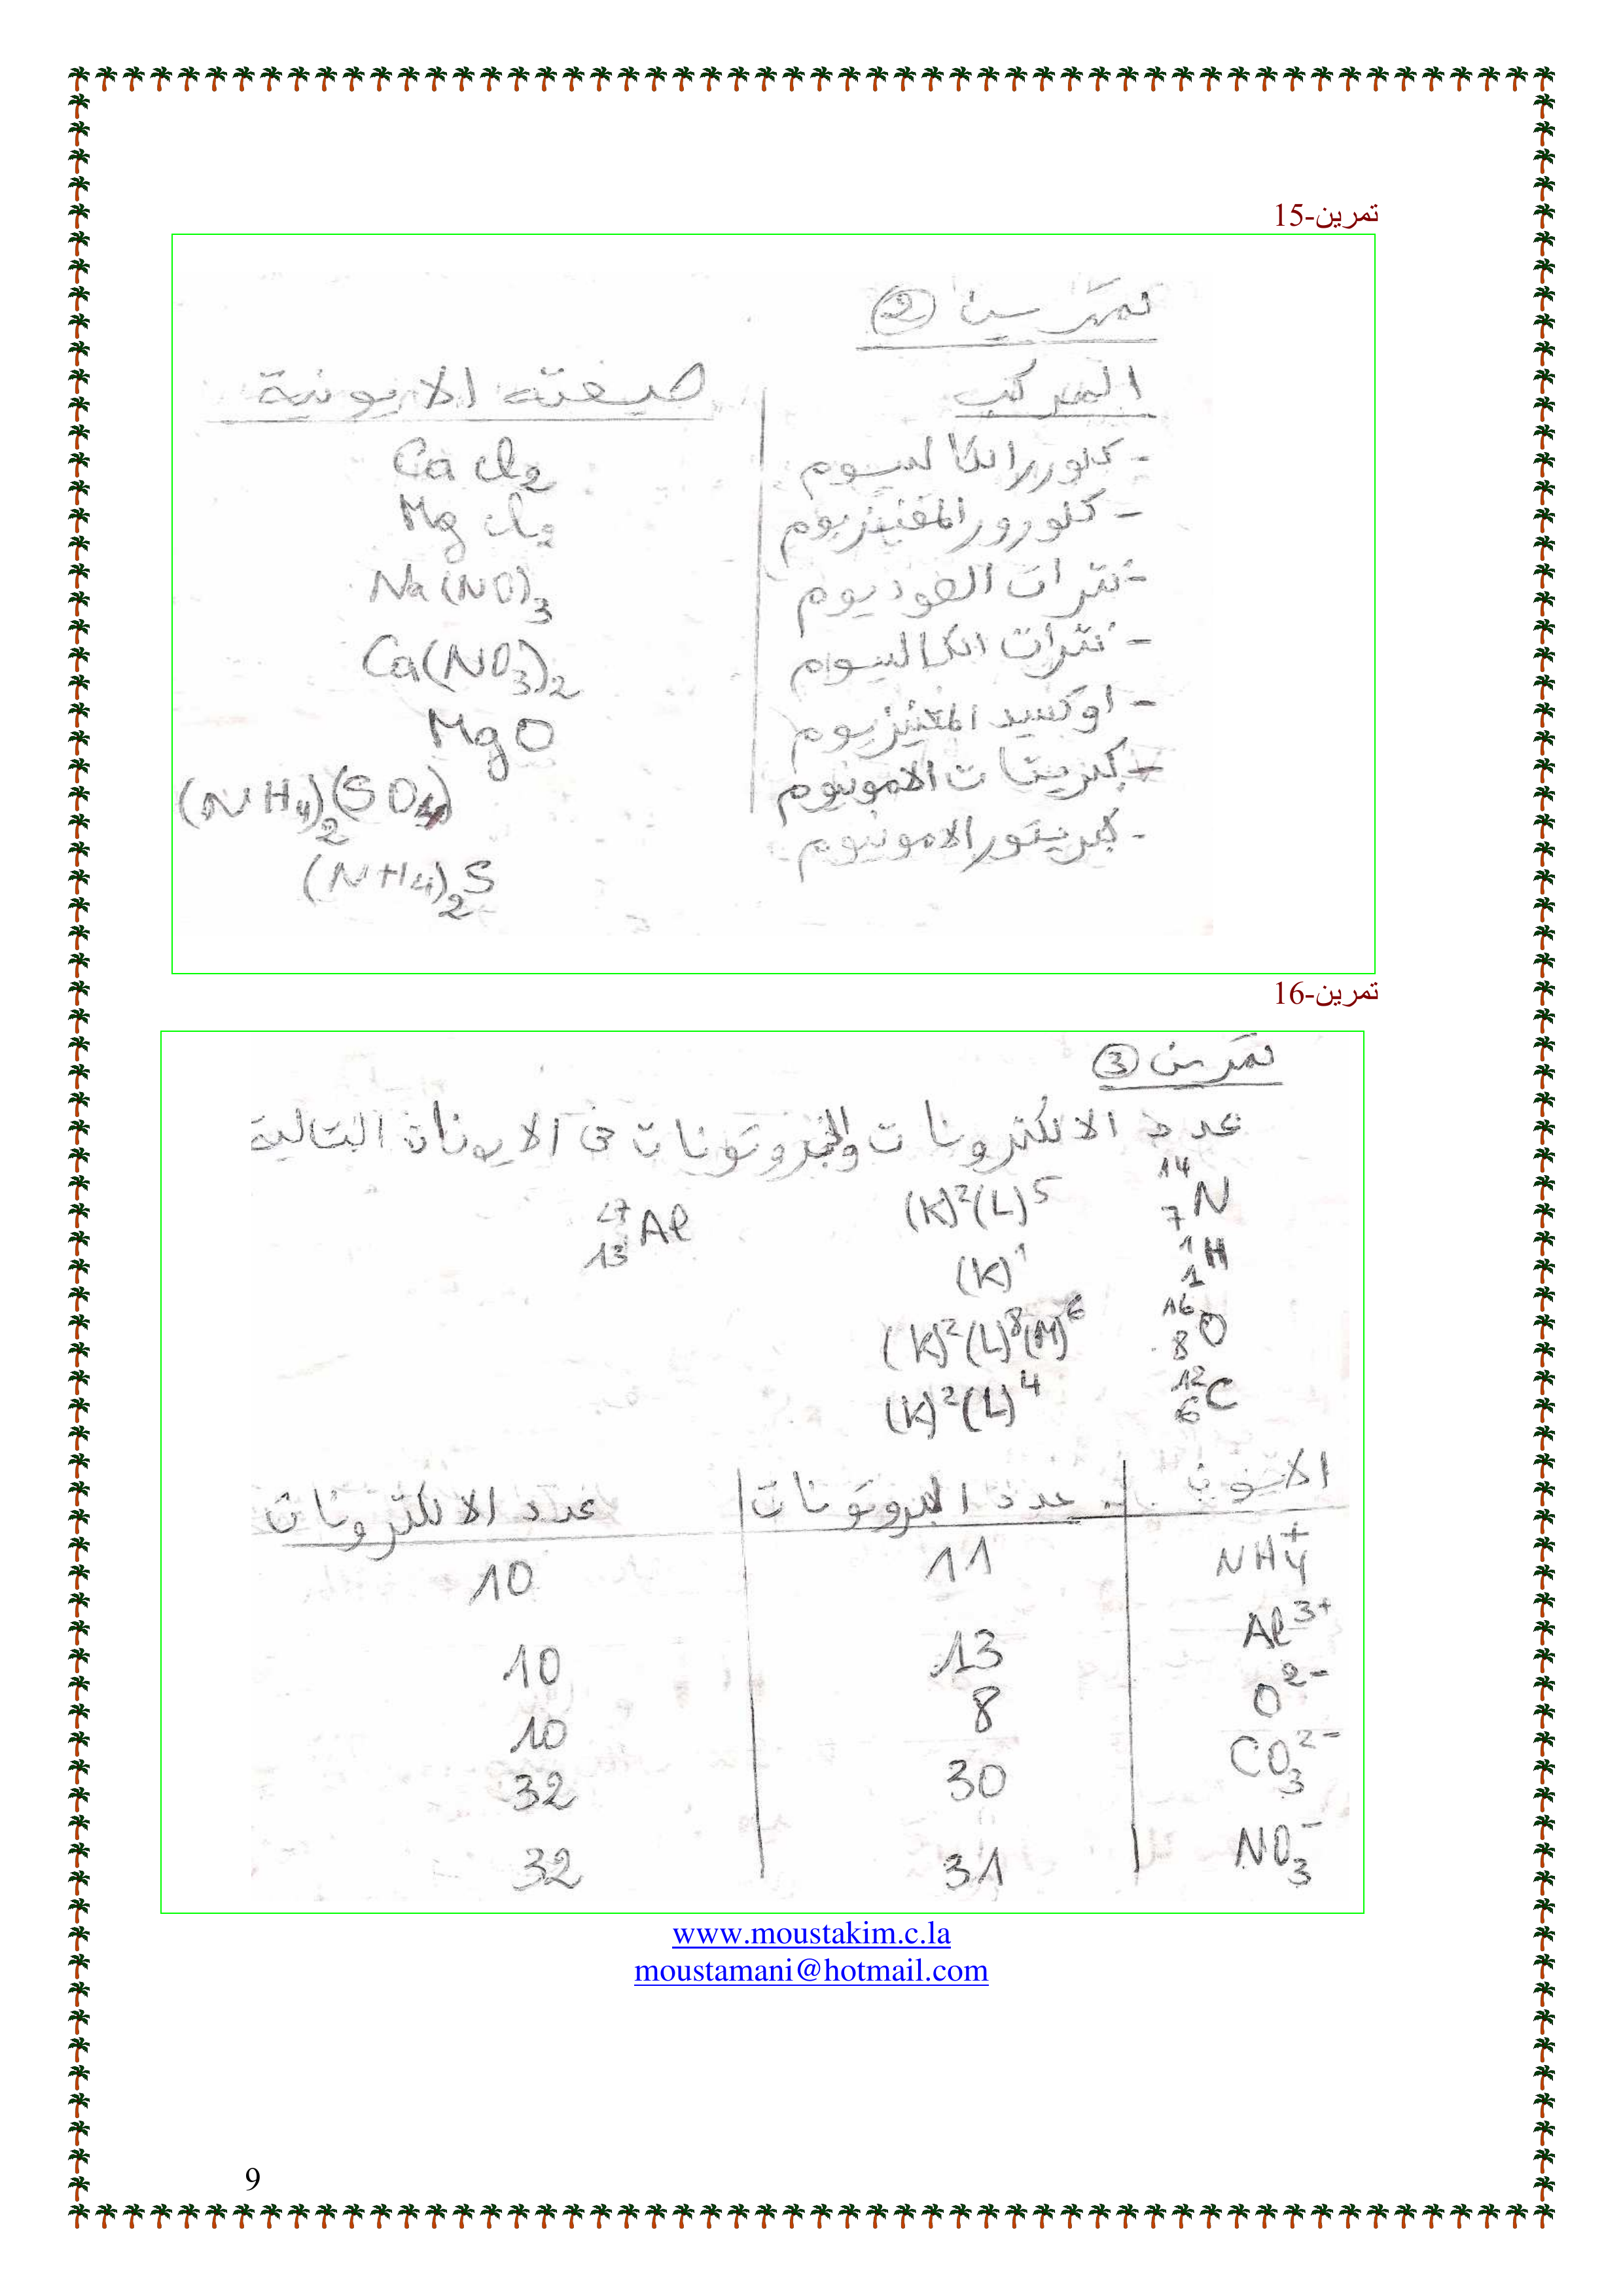 تمرين-15
تمرين ②
المركب | صيغته الايونية
- كلورور الكالسيوم | CaCl₂
- كلورور المغنيزيوم | MgCl₂
- نترات الصوديوم | Na(NO)₃
- نترات الكالسيوم | Ca(NO₃)₂
- اوكسيد المغنيزيوم | MgO
- كبريتات الامونيوم | (NH₄)₂(SO₄)
- كبريتور الامونيوم | (NH₄)₂S
تمرين-16
تمرين ③
عدد الالكترونات والبروتونات في الايونات التالية
¹⁴₇N (K)²(L)⁵ ²⁷₁₃Al
¹₁H (K)¹
¹⁶₈O (K)²(L)⁸(M)⁶
¹²₆C (K)²(L)⁴
الايون | عدد البروتونات | عدد الالكترونات
NH₄⁺ | 11 | 10
Al³⁺ | 13 | 10
O²⁻ | 8 | 10
CO₃²⁻ | 30 | 32
NO₃⁻ | 31 | 32
www.moustakim.c.la
moustamani@hotmail.com
9